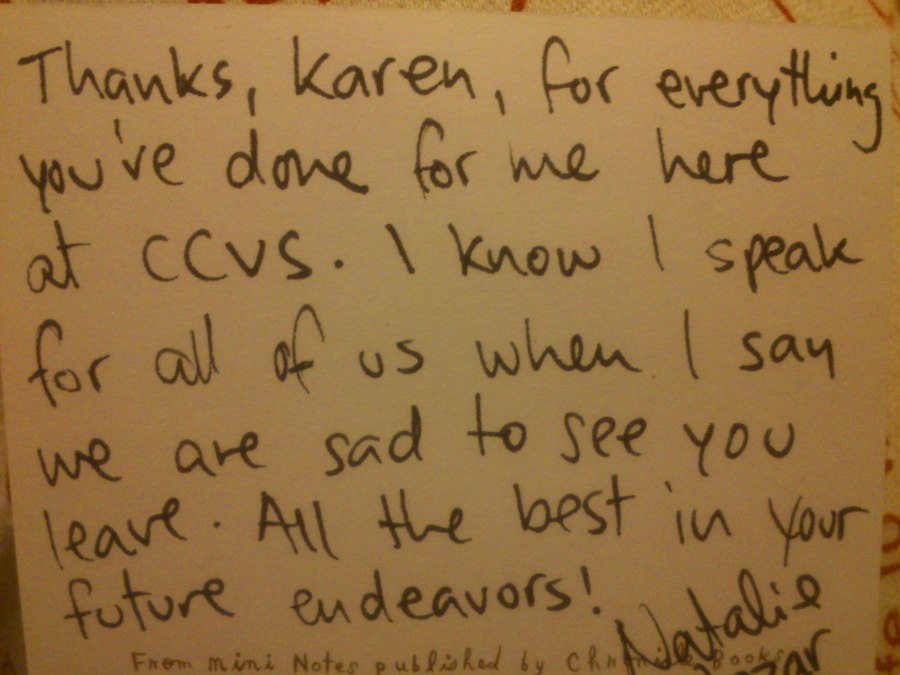 Thanks, Karen, for everything
you've done for me here
at CCVS. I know I speak
for all of us when I say
we are sad to see you
leave. All the best in your
future endeavors!
Natalie
From mini Notes published by Books